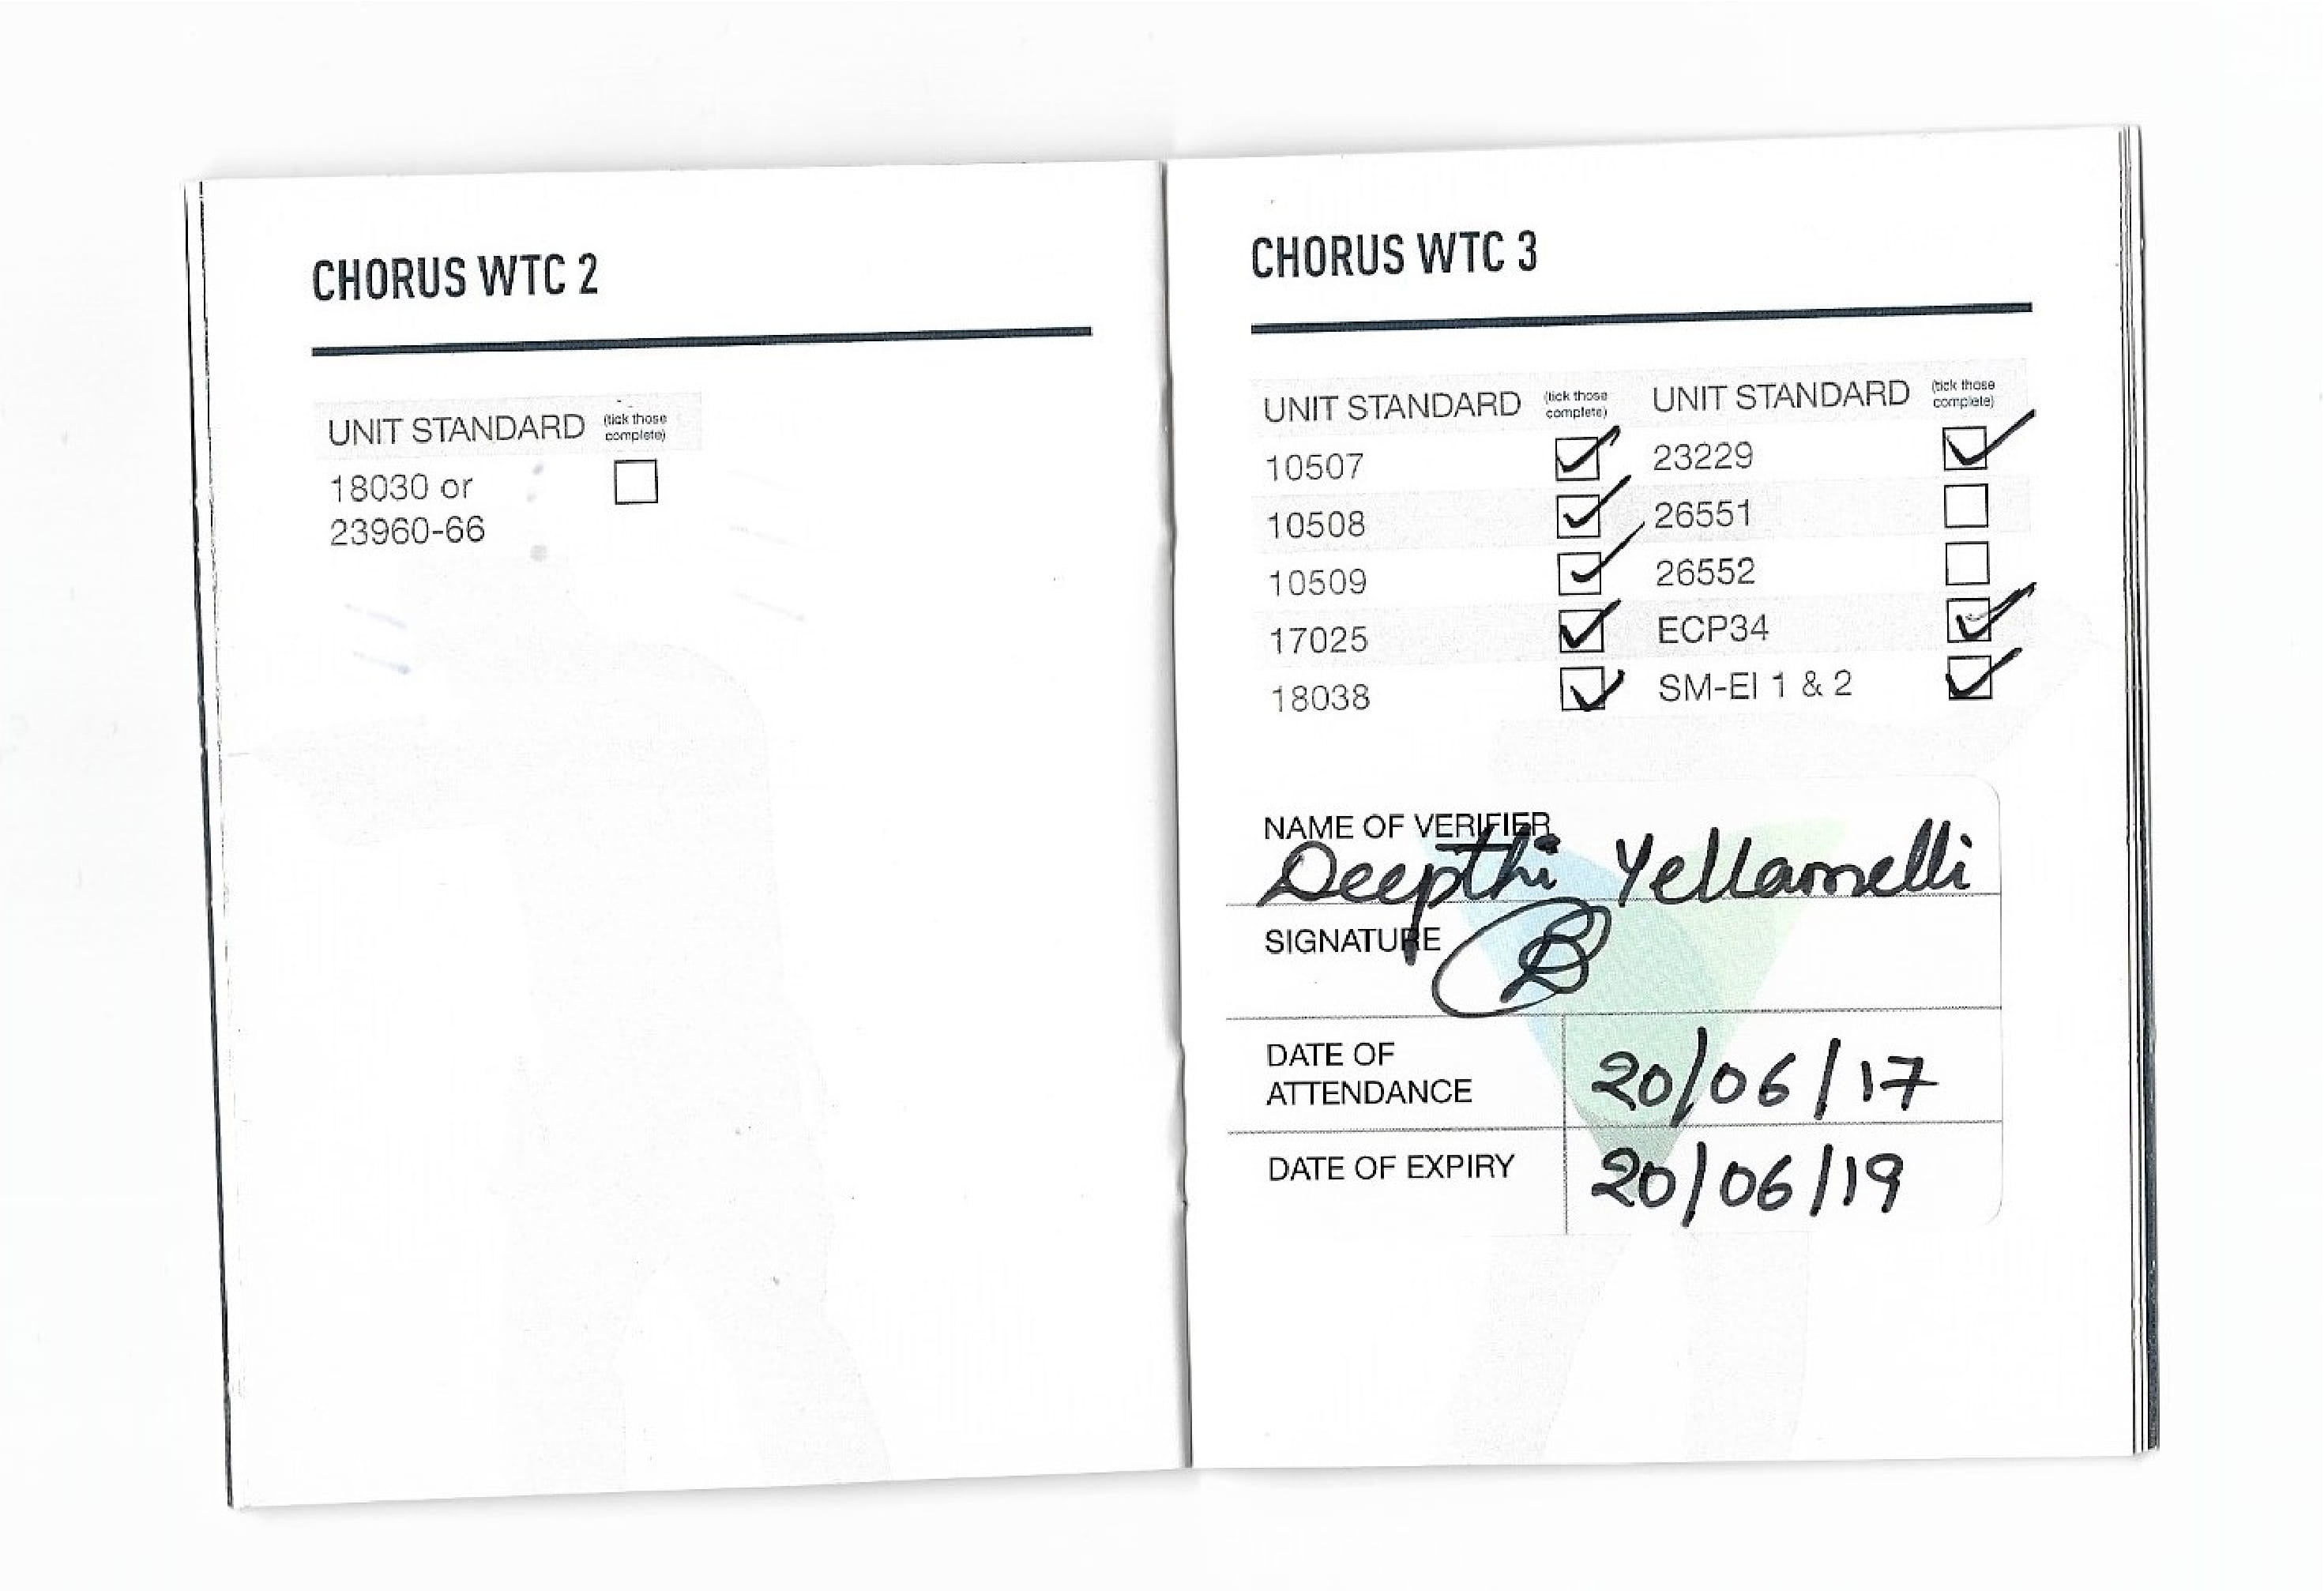 CHORUS WTC 2
UNIT STANDARD (tick those complete)
18030 or
23960-66
CHORUS WTC 3
UNIT STANDARD (tick those complete) UNIT STANDARD (tick those complete)
10507 23229
10508 26551
10509 26552
17025 ECP34
18038 SM-EI 1 & 2
NAME OF VERIFIER
Deepthi Yellamelli
SIGNATURE
DATE OF
ATTENDANCE 20/06/17
DATE OF EXPIRY 20/06/19